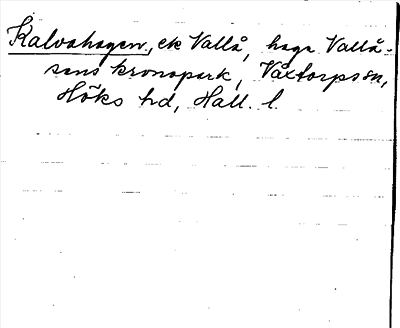 Kalvahagen, ek Vallå, hage Vallå-
sens kronopark, Våxtorps sn,
Höks hd, Hall. l.